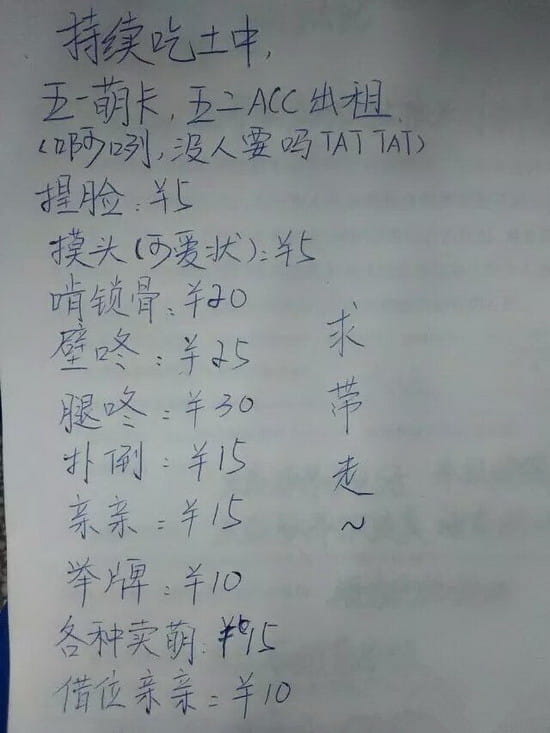 持续吃土中,
五一萌卡,五二ACC出租
(啊咧,没人要吗TAT TAT)
捏脸:¥5
摸头(可爱状):¥5
啃锁骨:¥20
壁咚:¥25
腿咚:¥30
扑倒:¥15
亲亲:¥15
举牌:¥10
各种卖萌:¥15
借位亲亲:¥10
求带走~